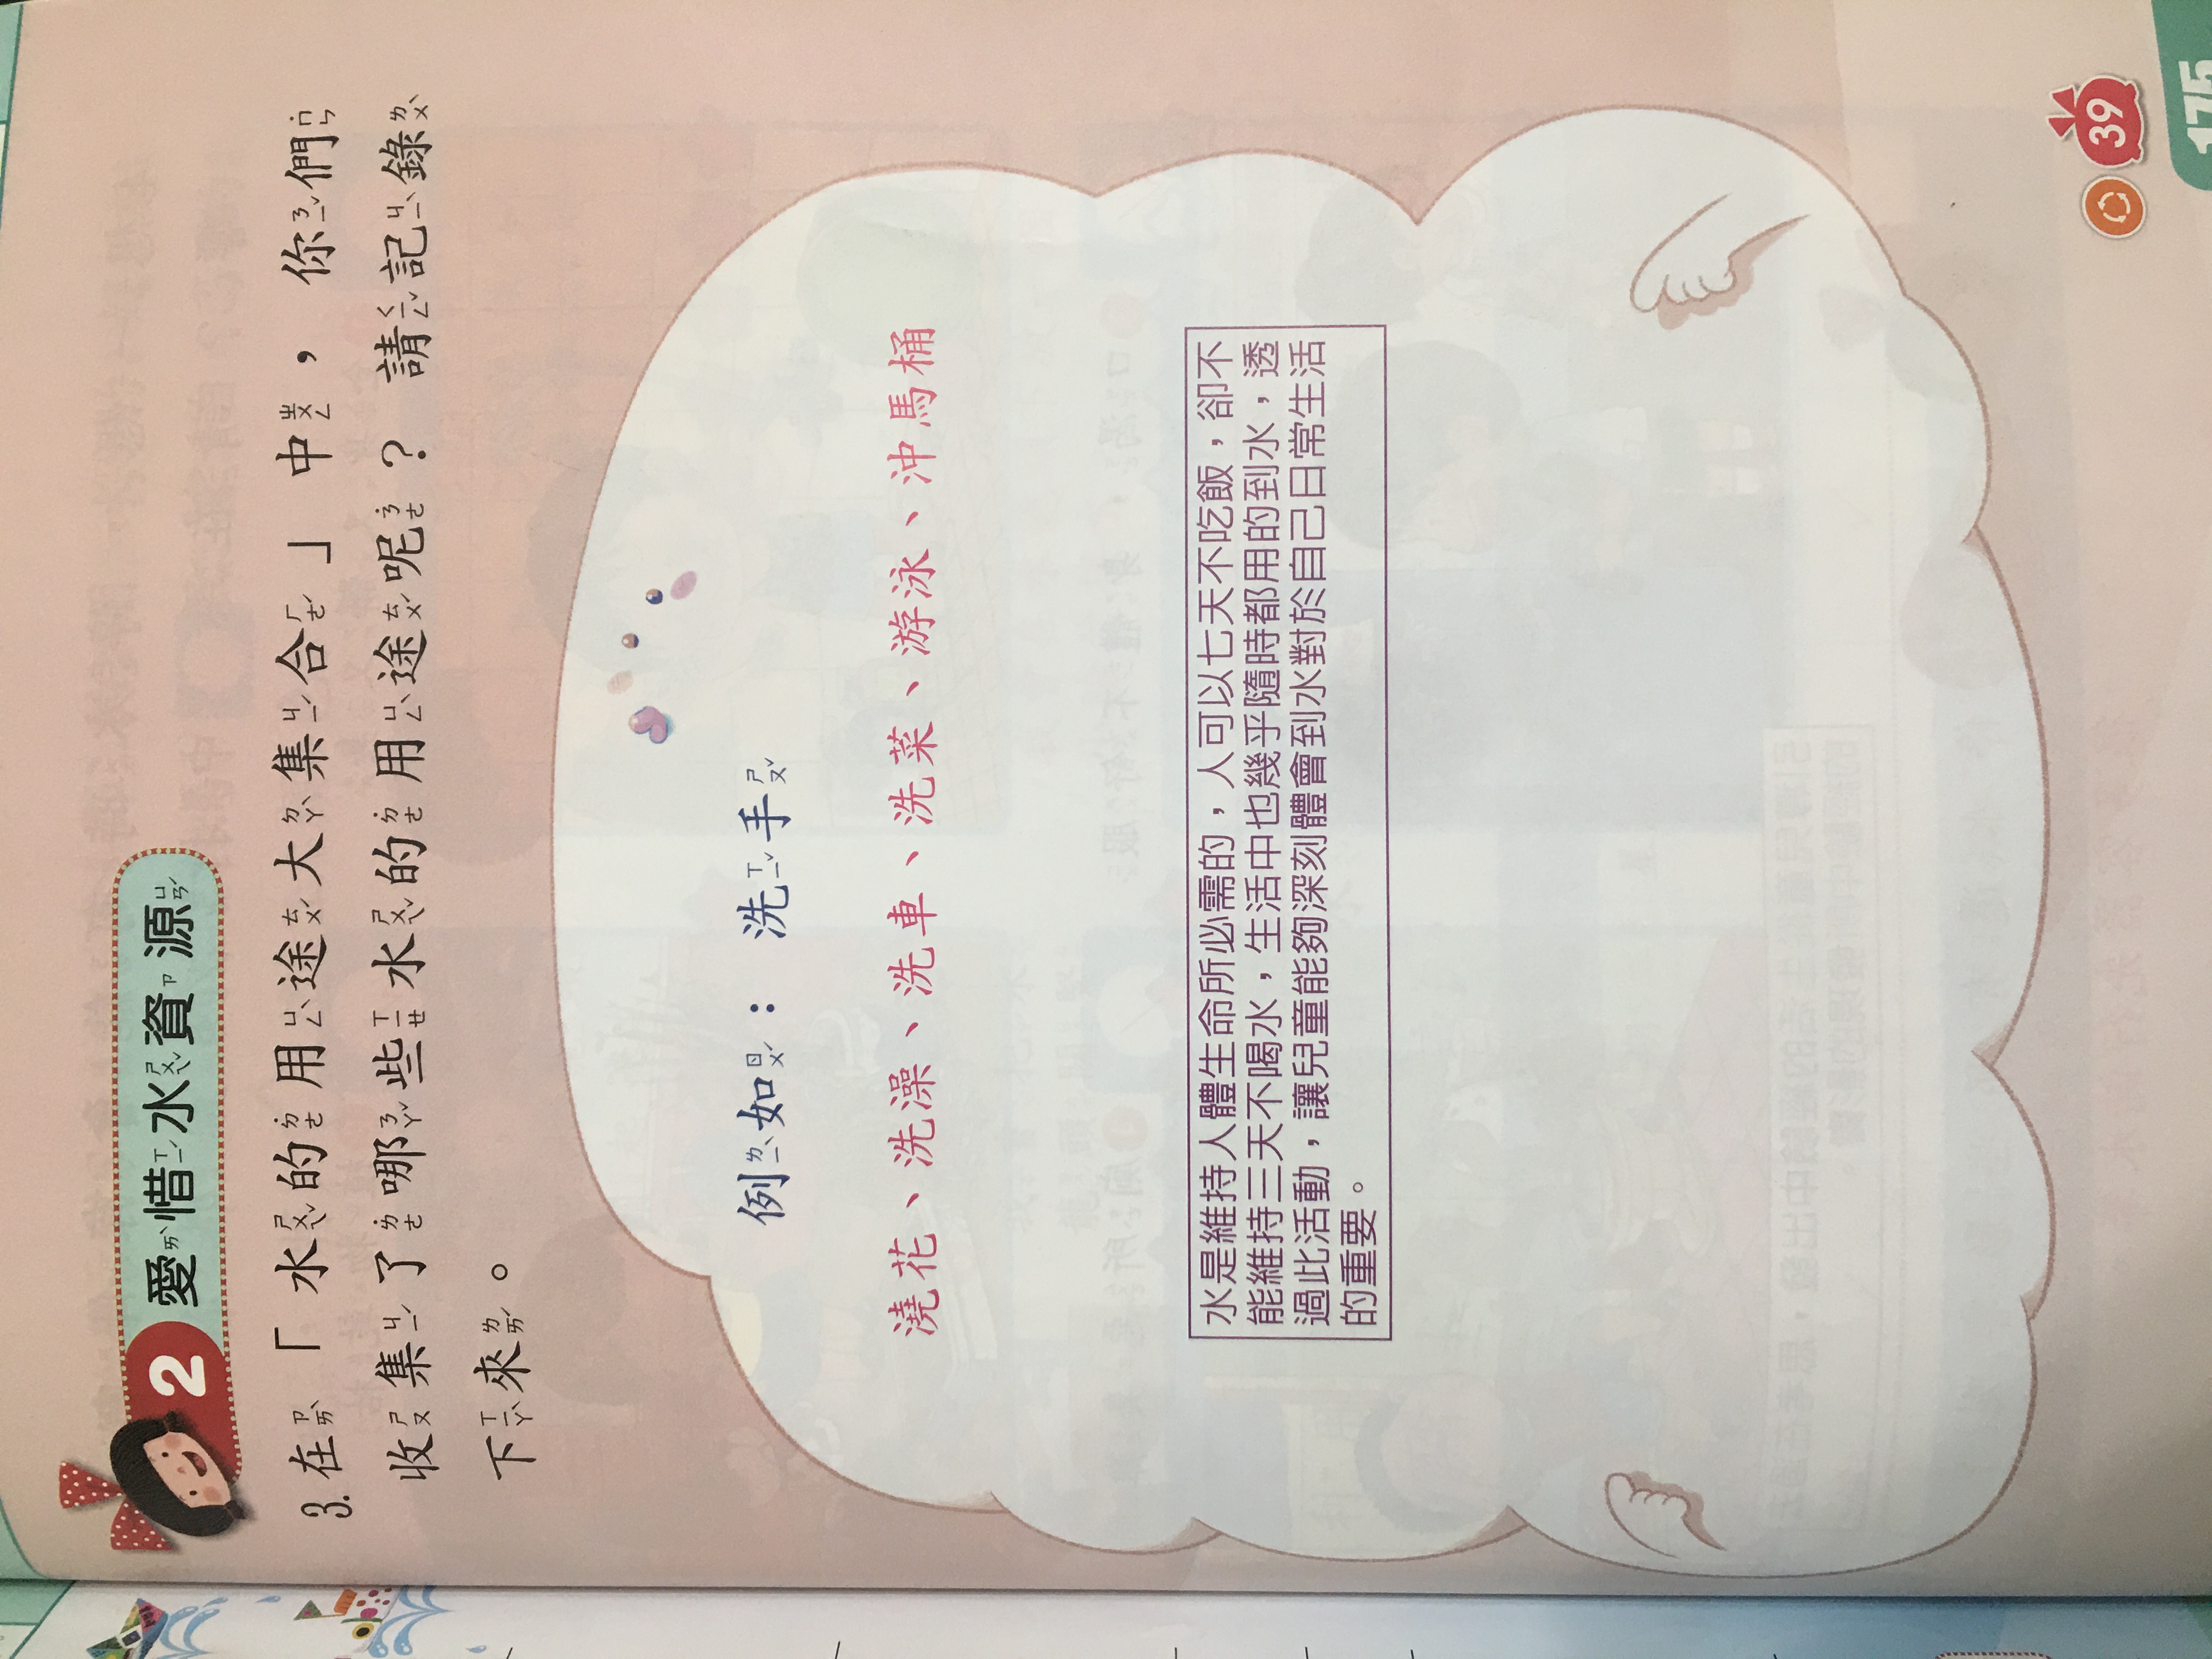 2 愛惜水資源
3.在「水的用途大集合」中，你們
收集了哪些水的用途呢？請記錄
下來。
例如：洗手
澆花、洗澡、洗車、洗菜、游泳、沖馬桶
水是維持人體生命所必需的，人可以七天不吃飯，卻不
能維持三天不喝水，生活中也幾乎隨時都用的到水，透
過此活動，讓兒童能夠深刻體會到水對於自己日常生活
的重要。
39
175